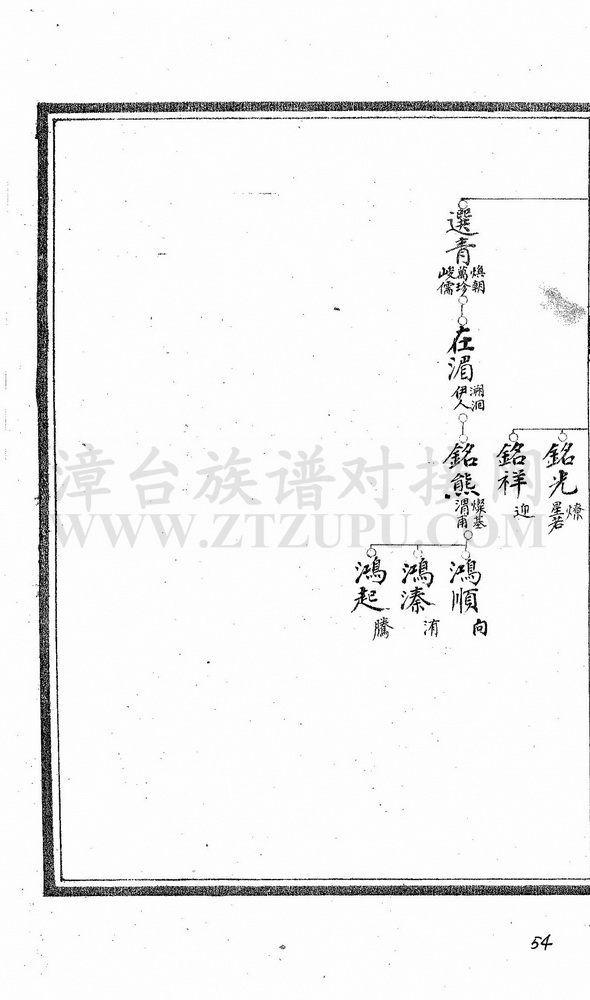 選青
煥朝
萬珍
峻儒
在湄
溯洄
伊人
銘光
燎
星若
銘祥
迎
銘熊
燦基
渭甫
鴻順
向
鴻溱
洧
鴻起
騰
漳台族谱对接网
WWW.ZTZUPU.COM
54